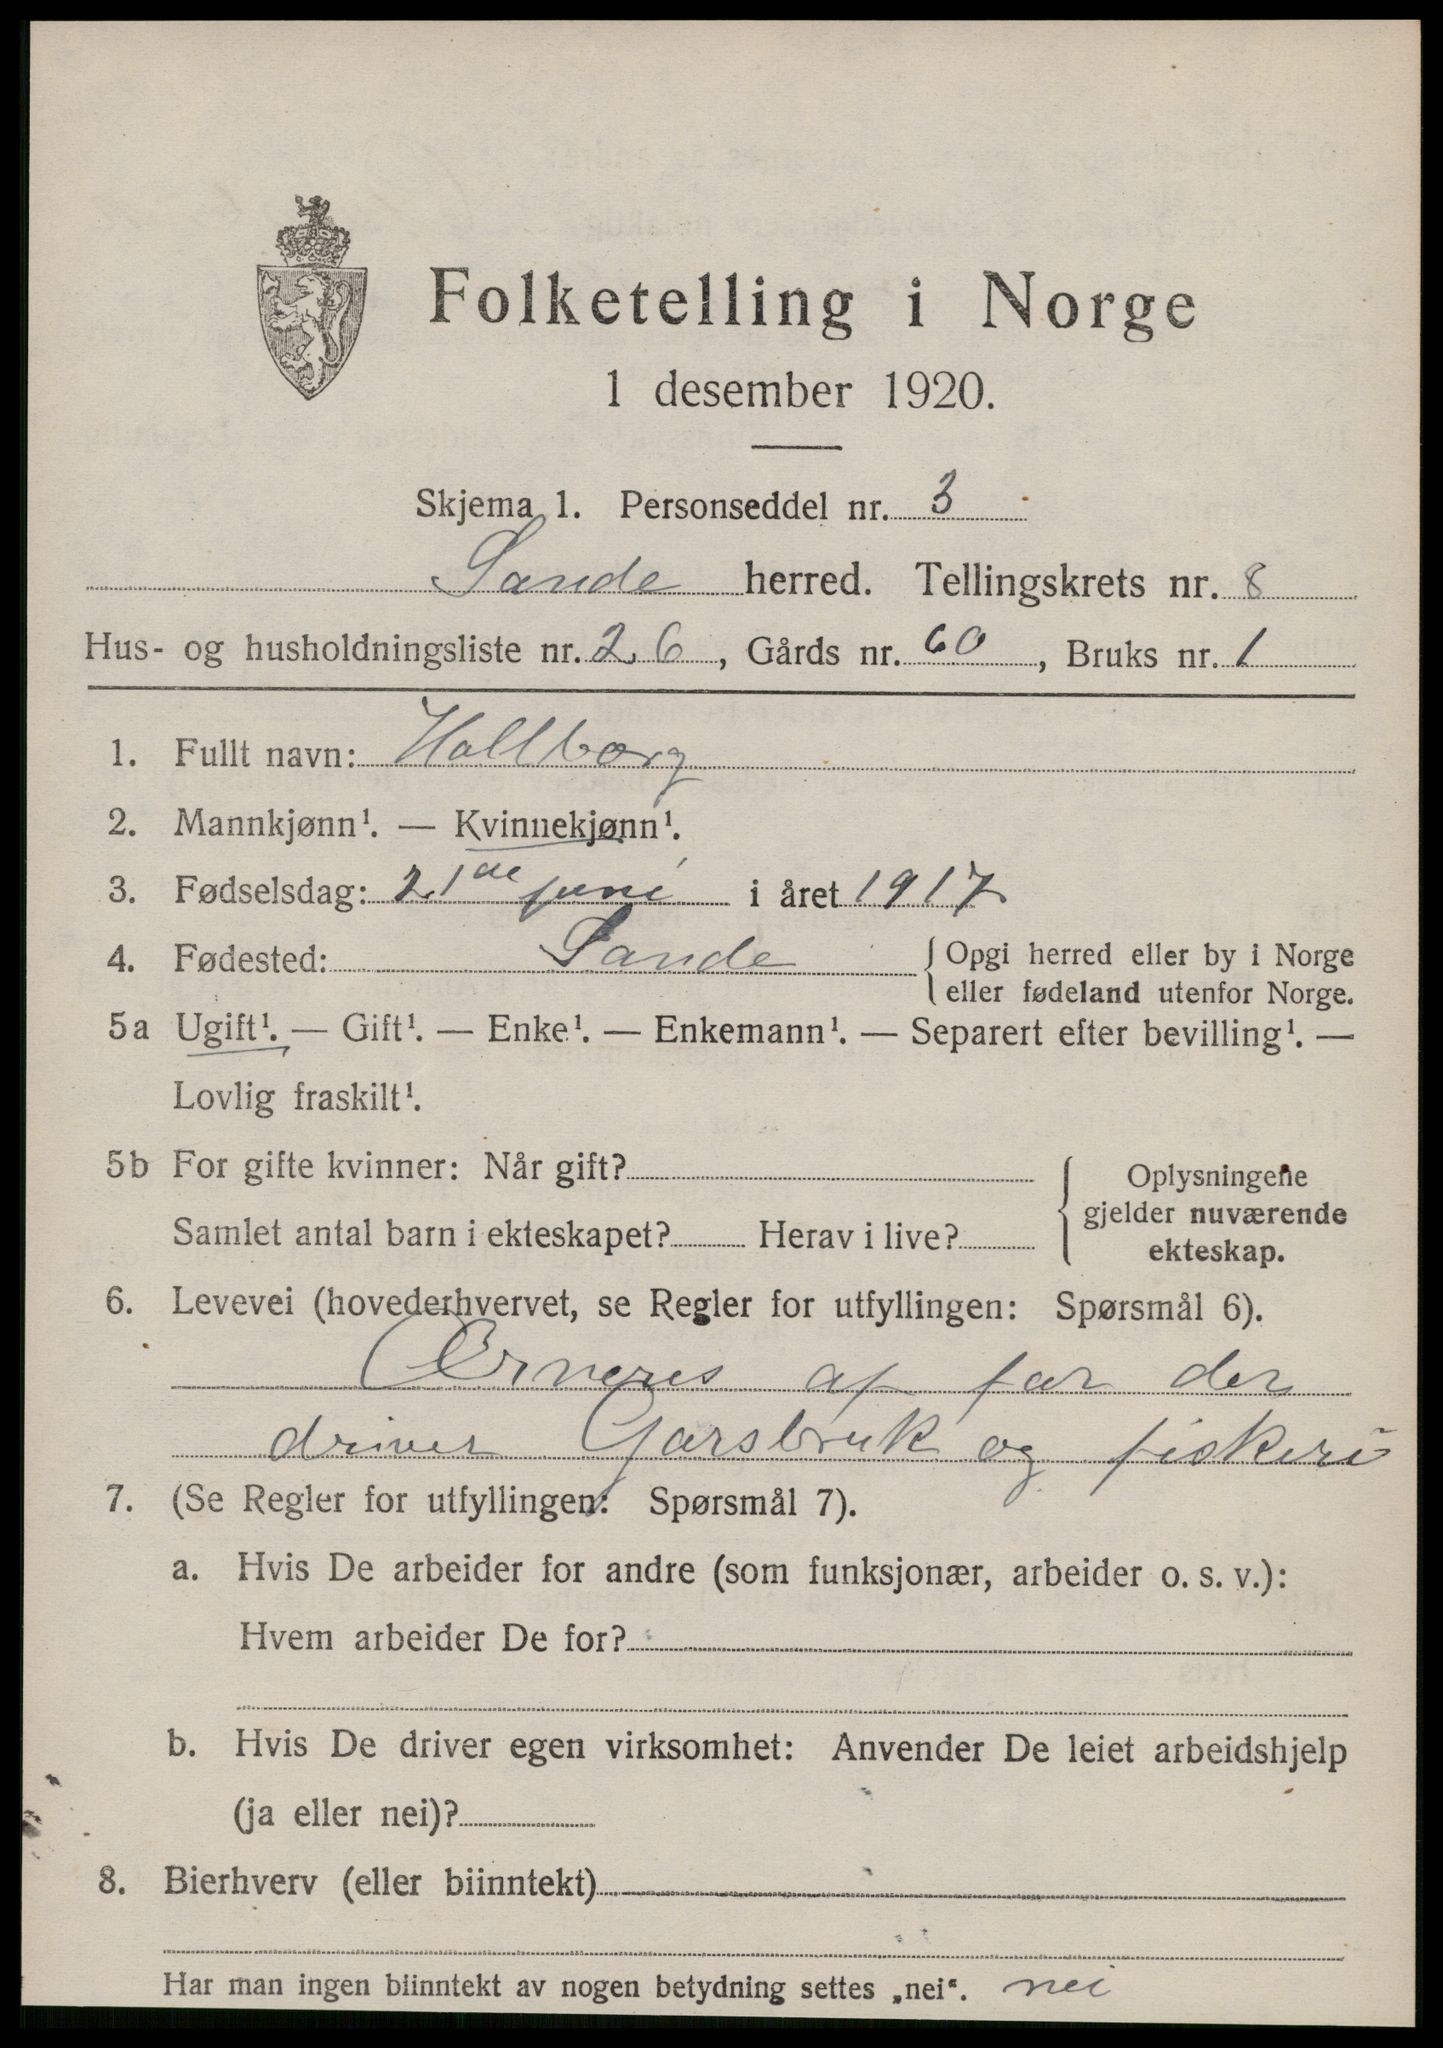 Folketelling i Norge
1 desember 1920.
Skjema 1. Personseddel nr. 3
Sande herred. Tellingskrets nr. 8
Hus- og husholdningsliste nr. 26, Gårds nr. 60, Bruks nr. 1
1. Fullt navn: Hallborg
2. Mannkjønn¹. — Kvinnekjønn¹.
3. Fødselsdag: 21de juni i året 1917
4. Fødested: Sande { Opgi herred eller by i Norge
eller fødeland utenfor Norge.
5a Ugift¹. — Gift¹. — Enke¹. — Enkemann¹. — Separert efter bevilling¹. —
Lovlig fraskilt¹.
5b For gifte kvinner: Når gift? { Oplysningene
gjelder nuværende
Samlet antal barn i ekteskapet? Herav i live?
ekteskap.
6. Levevei (hovederhvervet, se Regler for utfyllingen: Spørsmål 6).
Ærneres af far der
driver Garsbruk og fiskeri
7. (Se Regler for utfyllingen: Spørsmål 7).
a. Hvis De arbeider for andre (som funksjonær, arbeider o. s. v.):
Hvem arbeider De for?
b. Hvis De driver egen virksomhet: Anvender De leiet arbeidshjelp
(ja eller nei)?
8. Bierhverv (eller biinntekt)
Har man ingen biinntekt av nogen betydning settes „nei“. nei